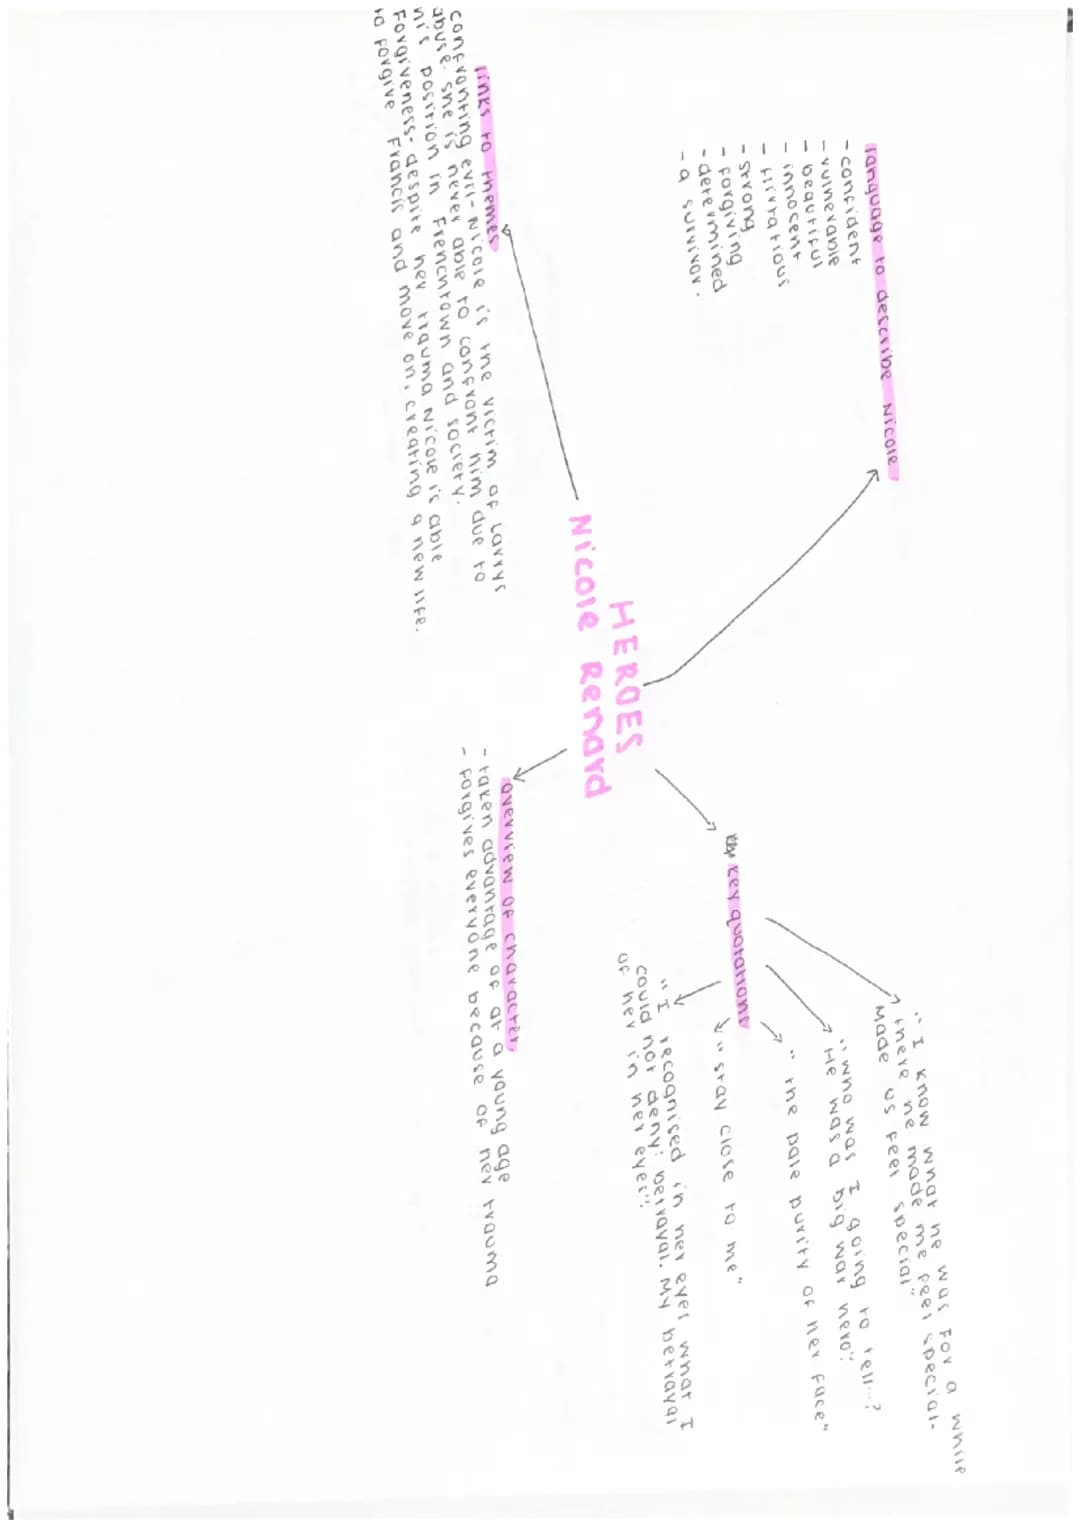 HEROES
Nicole Renard
language to describe Nicole
- confident
- vulnerable
- beautiful
- innocent
- flirtatious
- strong
- forgiving
- determined
- a survivor.
key quotations
"I know what he was for a while
there he made me feel special-
made us feel special"
"who was I going to tell...?
He was a big war hero"
"the pale purity of her face"
"stay close to me"
"I recognised in her eyes what I
could not deny: betrayal. My betrayal
of her in her eyes".
links to themes
confronting evil- Nicole is the victim of larrys
abuse. she is never able to confront him due to
his position in Frenchtown and society.
Forgiveness- despite her trauma Nicole is able
to forgive Francis and move on, creating a new life.
overview of character
- taken advantage of at a young age
- forgives everyone because of her trauma